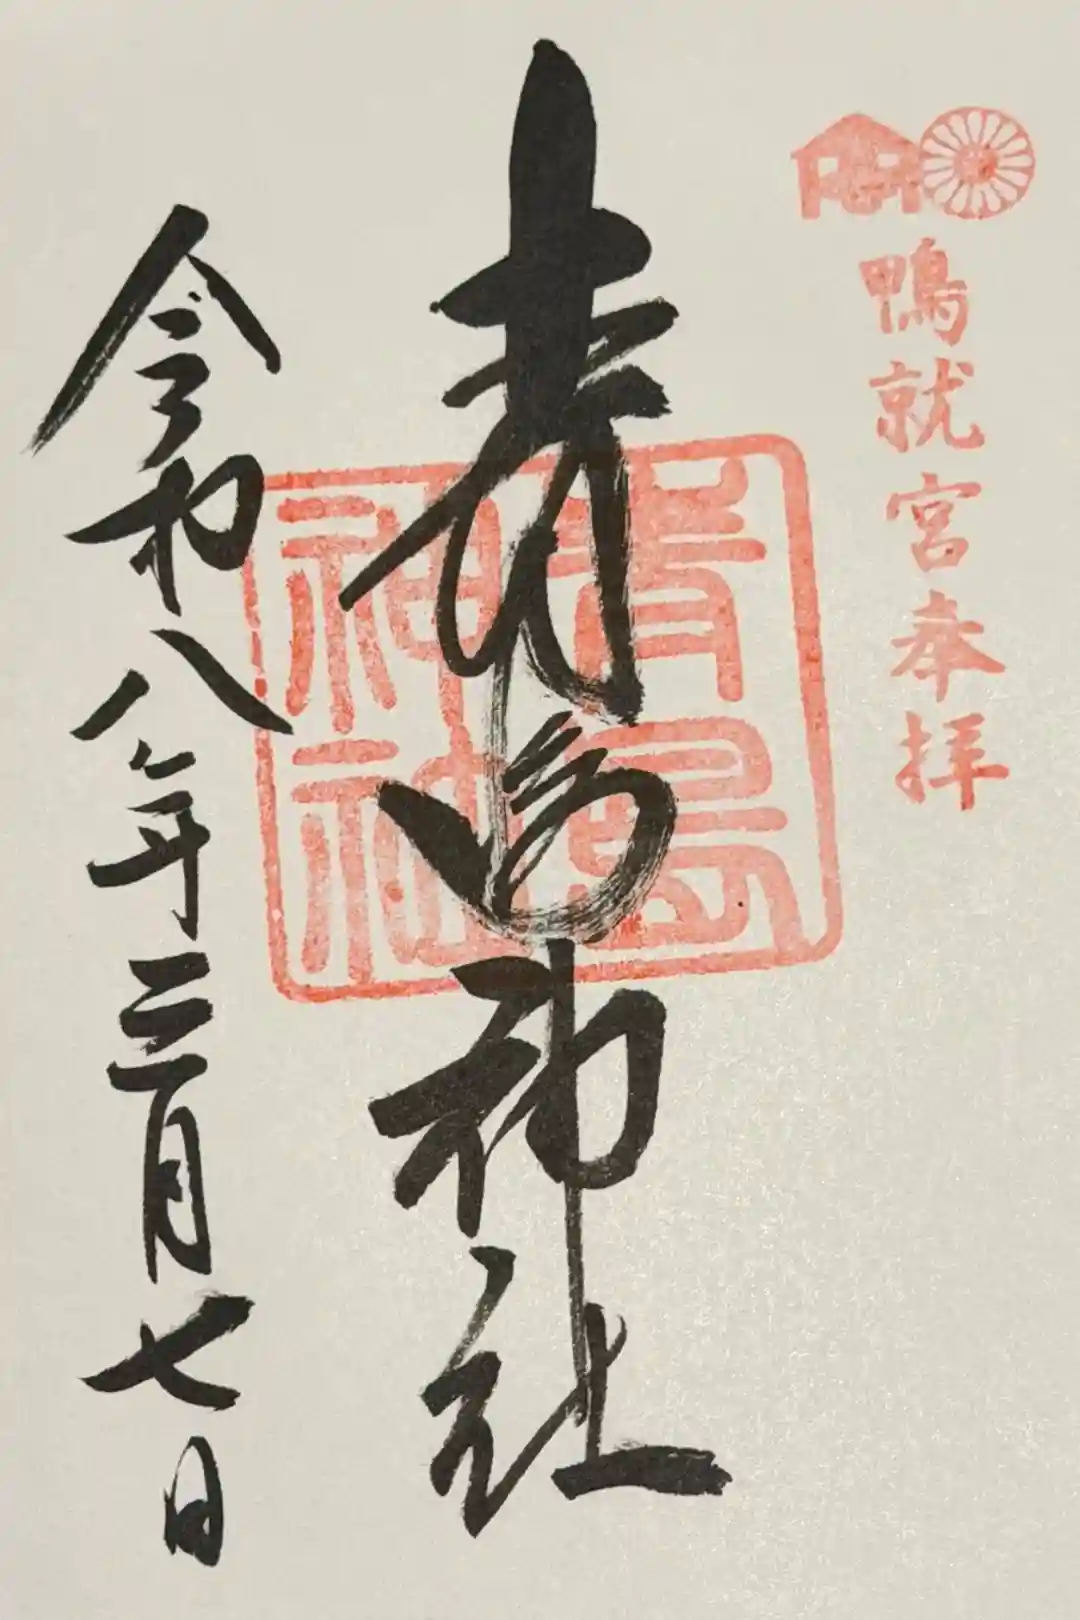 鴨就宮奉拝
青島神社
青島
神社
令和八年三月七日